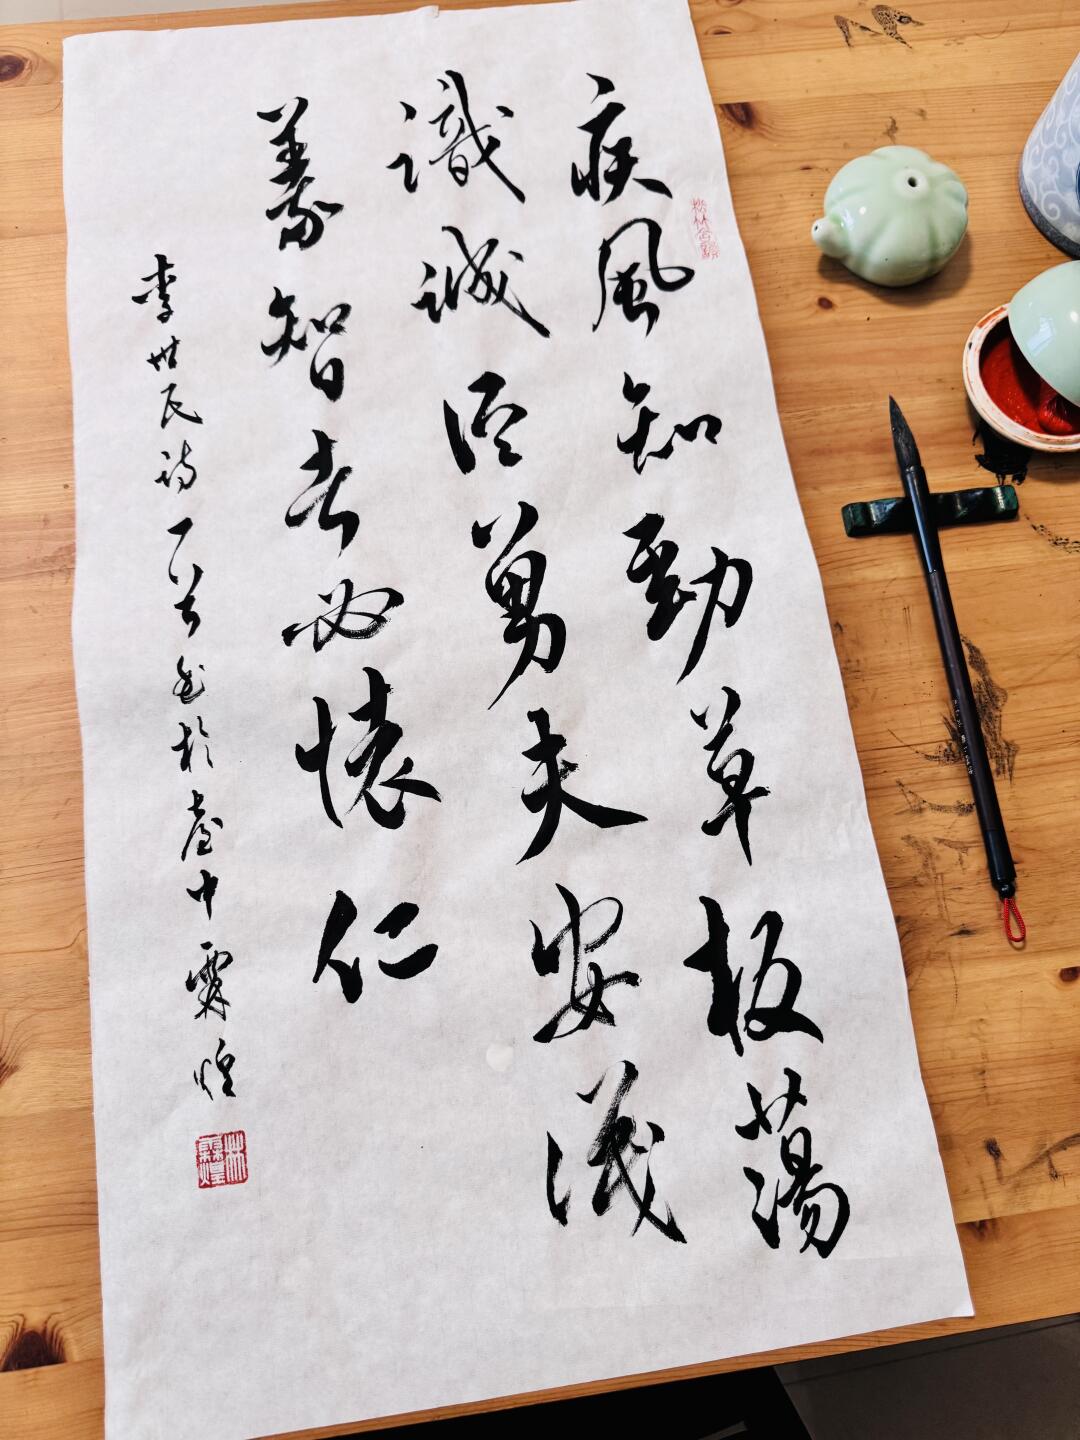 疾風知勁草板蕩
識誠臣勇夫安識
義智者必懷仁
李世民詩一首書於臺中霖煌
林霖煌